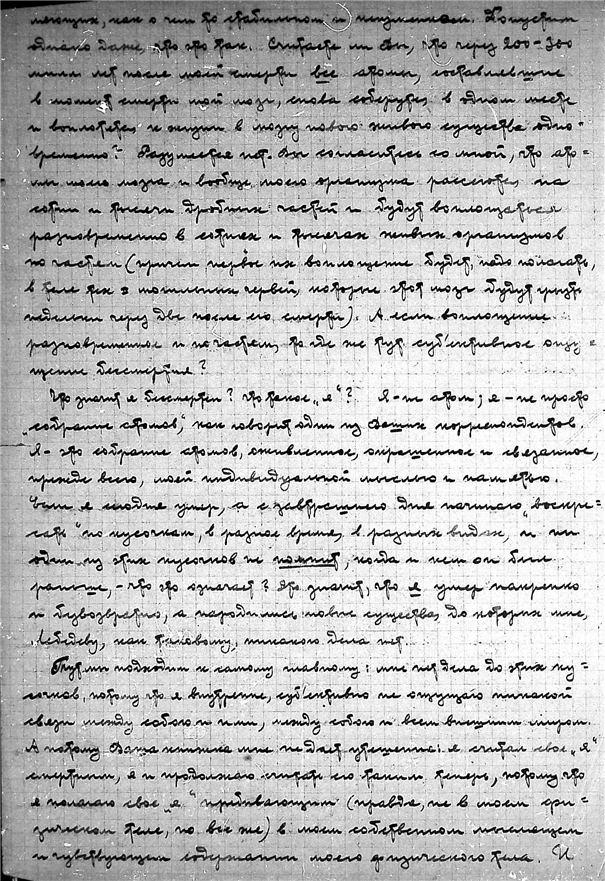 мающих, как о чем то стабильном и неизменном. Допустим
однако даже, что это так. Считаете ли Вы, что через 200-300
милл. лет после моей смерти все атомы, составлявшие
в момент смерти мой мозг, снова соберутся в одном месте
и воплотятся к жизни в мозгу нового живого существа одно-
временно? Разумеется нет. Вы согласитесь со мной, что ато-
мы моего мозга и вообще моего организма рассеются на
сотни и тысячи дробных частей и будут воплощаться
разновременно в сотнях и тысячах живых организмов
по частям (причем первое их воплощение будет, надо полагать,
в теле тех могильных червей, которые этот мозг будут грызть
недельки через две после его смерти). А если воплощение
разновременное и по частям, то где же тут суб'ективное ощу-
щение бессмертия?
Что значит я бессмертен? Что такое „я“? Я - не атом; я - не просто
„собрание атомов“, как говорит один из Ваших корреспондентов.
Я - это собрание атомов, оживленное, окрашенное и связанное,
прежде всего, моей индивидуальной мыслью и памятью.
Если я сегодня умер, а с завтрашнего дня начинаю „воскре-
сать“ по кусочкам, в разное время, в разных видах, и ни
один из этих кусочков не помнит, когда и кем он был
раньше, - что это означает? Это значит, что я умер накрепко
и безвозвратно, а народились новые существа, до которых мне,
Лебедеву, как таковому, никакого дела нет.
Тут мы подходим к самому главному: мне нет дела до этих ку-
сочков, потому что я внутренне, суб'ективно не ощущаю никакой
связи между собою и ими, между собою и всем внешним миром.
А потому Ваша книжка мне не дает утешения: я считал свое „я“
смертным, я и продолжаю считать его таким теперь, потому что
я полагаю свое „я“ пребывающим (правда, не в моем фи-
зическом теле, но все же) в моем собственном мыслящем
и чувствующем содержании моего физического тела. И